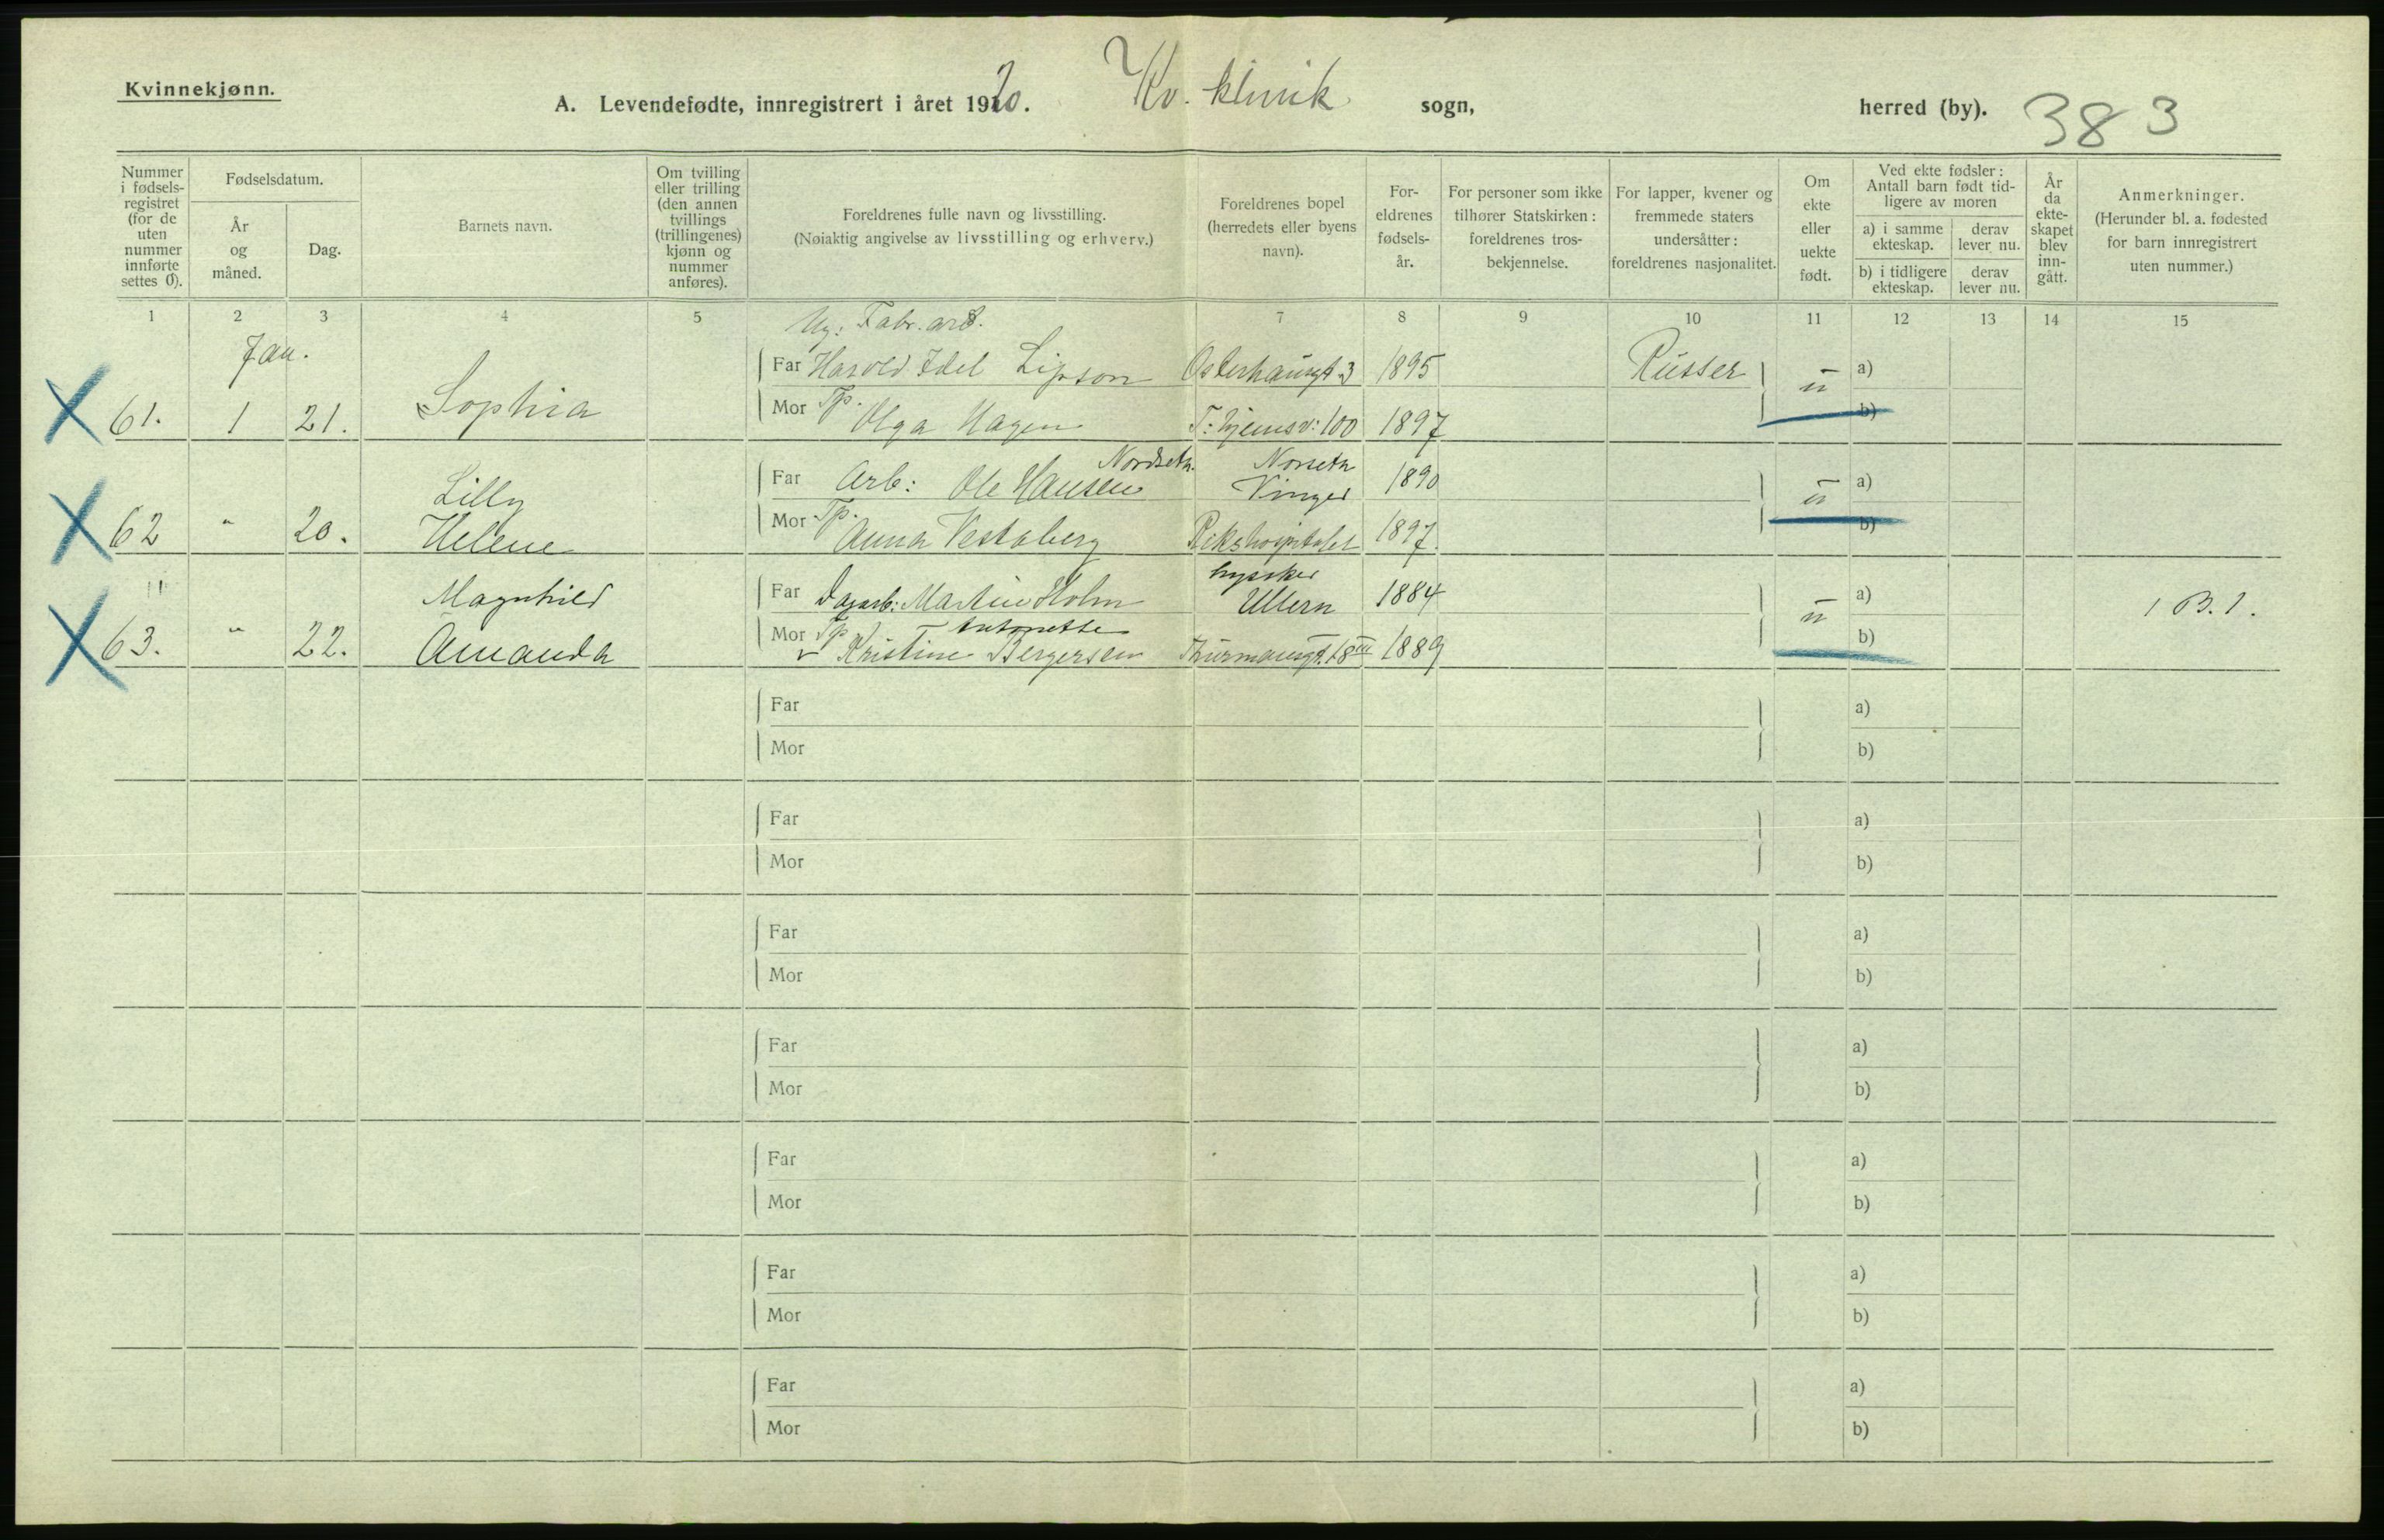 Kvinnekjønn.
A. Levendefødte, innregistrert i året 1920. Kv. klinik sogn, herred (by). 383
Nummer i fødselsregistret (for de uten nummer innførte settes 0).
Fødselsdatum.
År og måned.
Dag.
Barnets navn.
Om tvilling eller trilling (den annen tvillings (trillingenes) kjønn og nummer anføres).
Foreldrenes fulle navn og livsstilling.
(Nøiaktig angivelse av livsstilling og erhverv.)
Foreldrenes bopel (herredets eller byens navn).
Foreldrenes fødselsår.
For personer som ikke tilhører Statskirken: foreldrenes trosbekjennelse.
For lapper, kvener og fremmede staters undersåtter: foreldrenes nasjonalitet.
Om ekte eller uekte født.
Ved ekte fødsler: Antall barn født tidligere av moren
a) i samme ekteskap.
derav lever nu.
b) i tidligere ekteskap.
derav lever nu.
År da ekteskapet blev inngått.
Anmerkninger.
(Herunder bl. a. fødested for barn innregistrert uten nummer.)
1 2 3 4 5 7 8 9 10 11 12 13 14 15
Ug: Fabr. arb.
Jan.
Far Harold Idel Lipson Osterhausgt. 3 1895 Russer u a)
61. 1 21. Sophia
Mor Tp. Olga Hagen T: hjemsv: 100 1897 b)
Nordseth. Norseth
Far Arb: Ole Hansen Vinger 1890 u a)
Lilly
62 " 20. Helene
Mor Tp. Anna Vestaberg Rikshospitalet 1897. b)
Far Dagarb: Martin Holm Ullern 1884 u a) 1 B. 1.
Magnhild
63. " 22. Amanda
Antonette
Mor Tp Kristine Bergersen Thurmannsgt. 18 III 1889 b)
Far a)
Mor b)
Far a)
Mor b)
Far a)
Mor b)
Far a)
Mor b)
Far a)
Mor b)
Far a)
Mor b)
Far a)
Mor b)